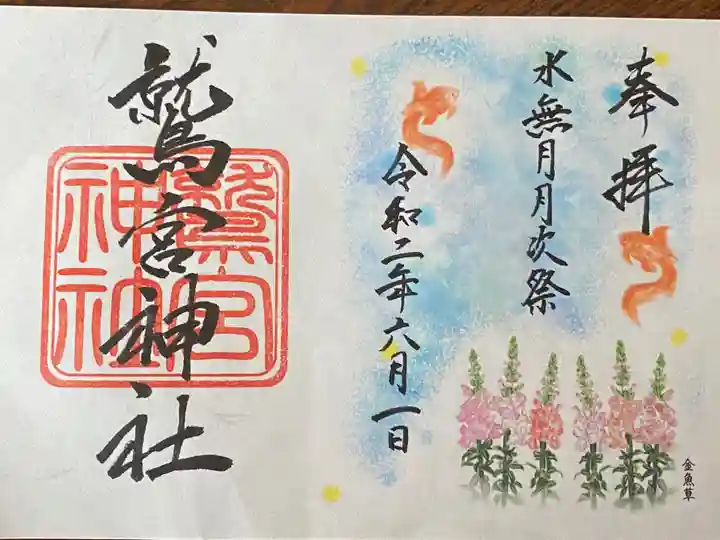 奉拝
水無月月次祭
令和二年六月一日
鷲宮神社
鷲宮
神社
金魚草